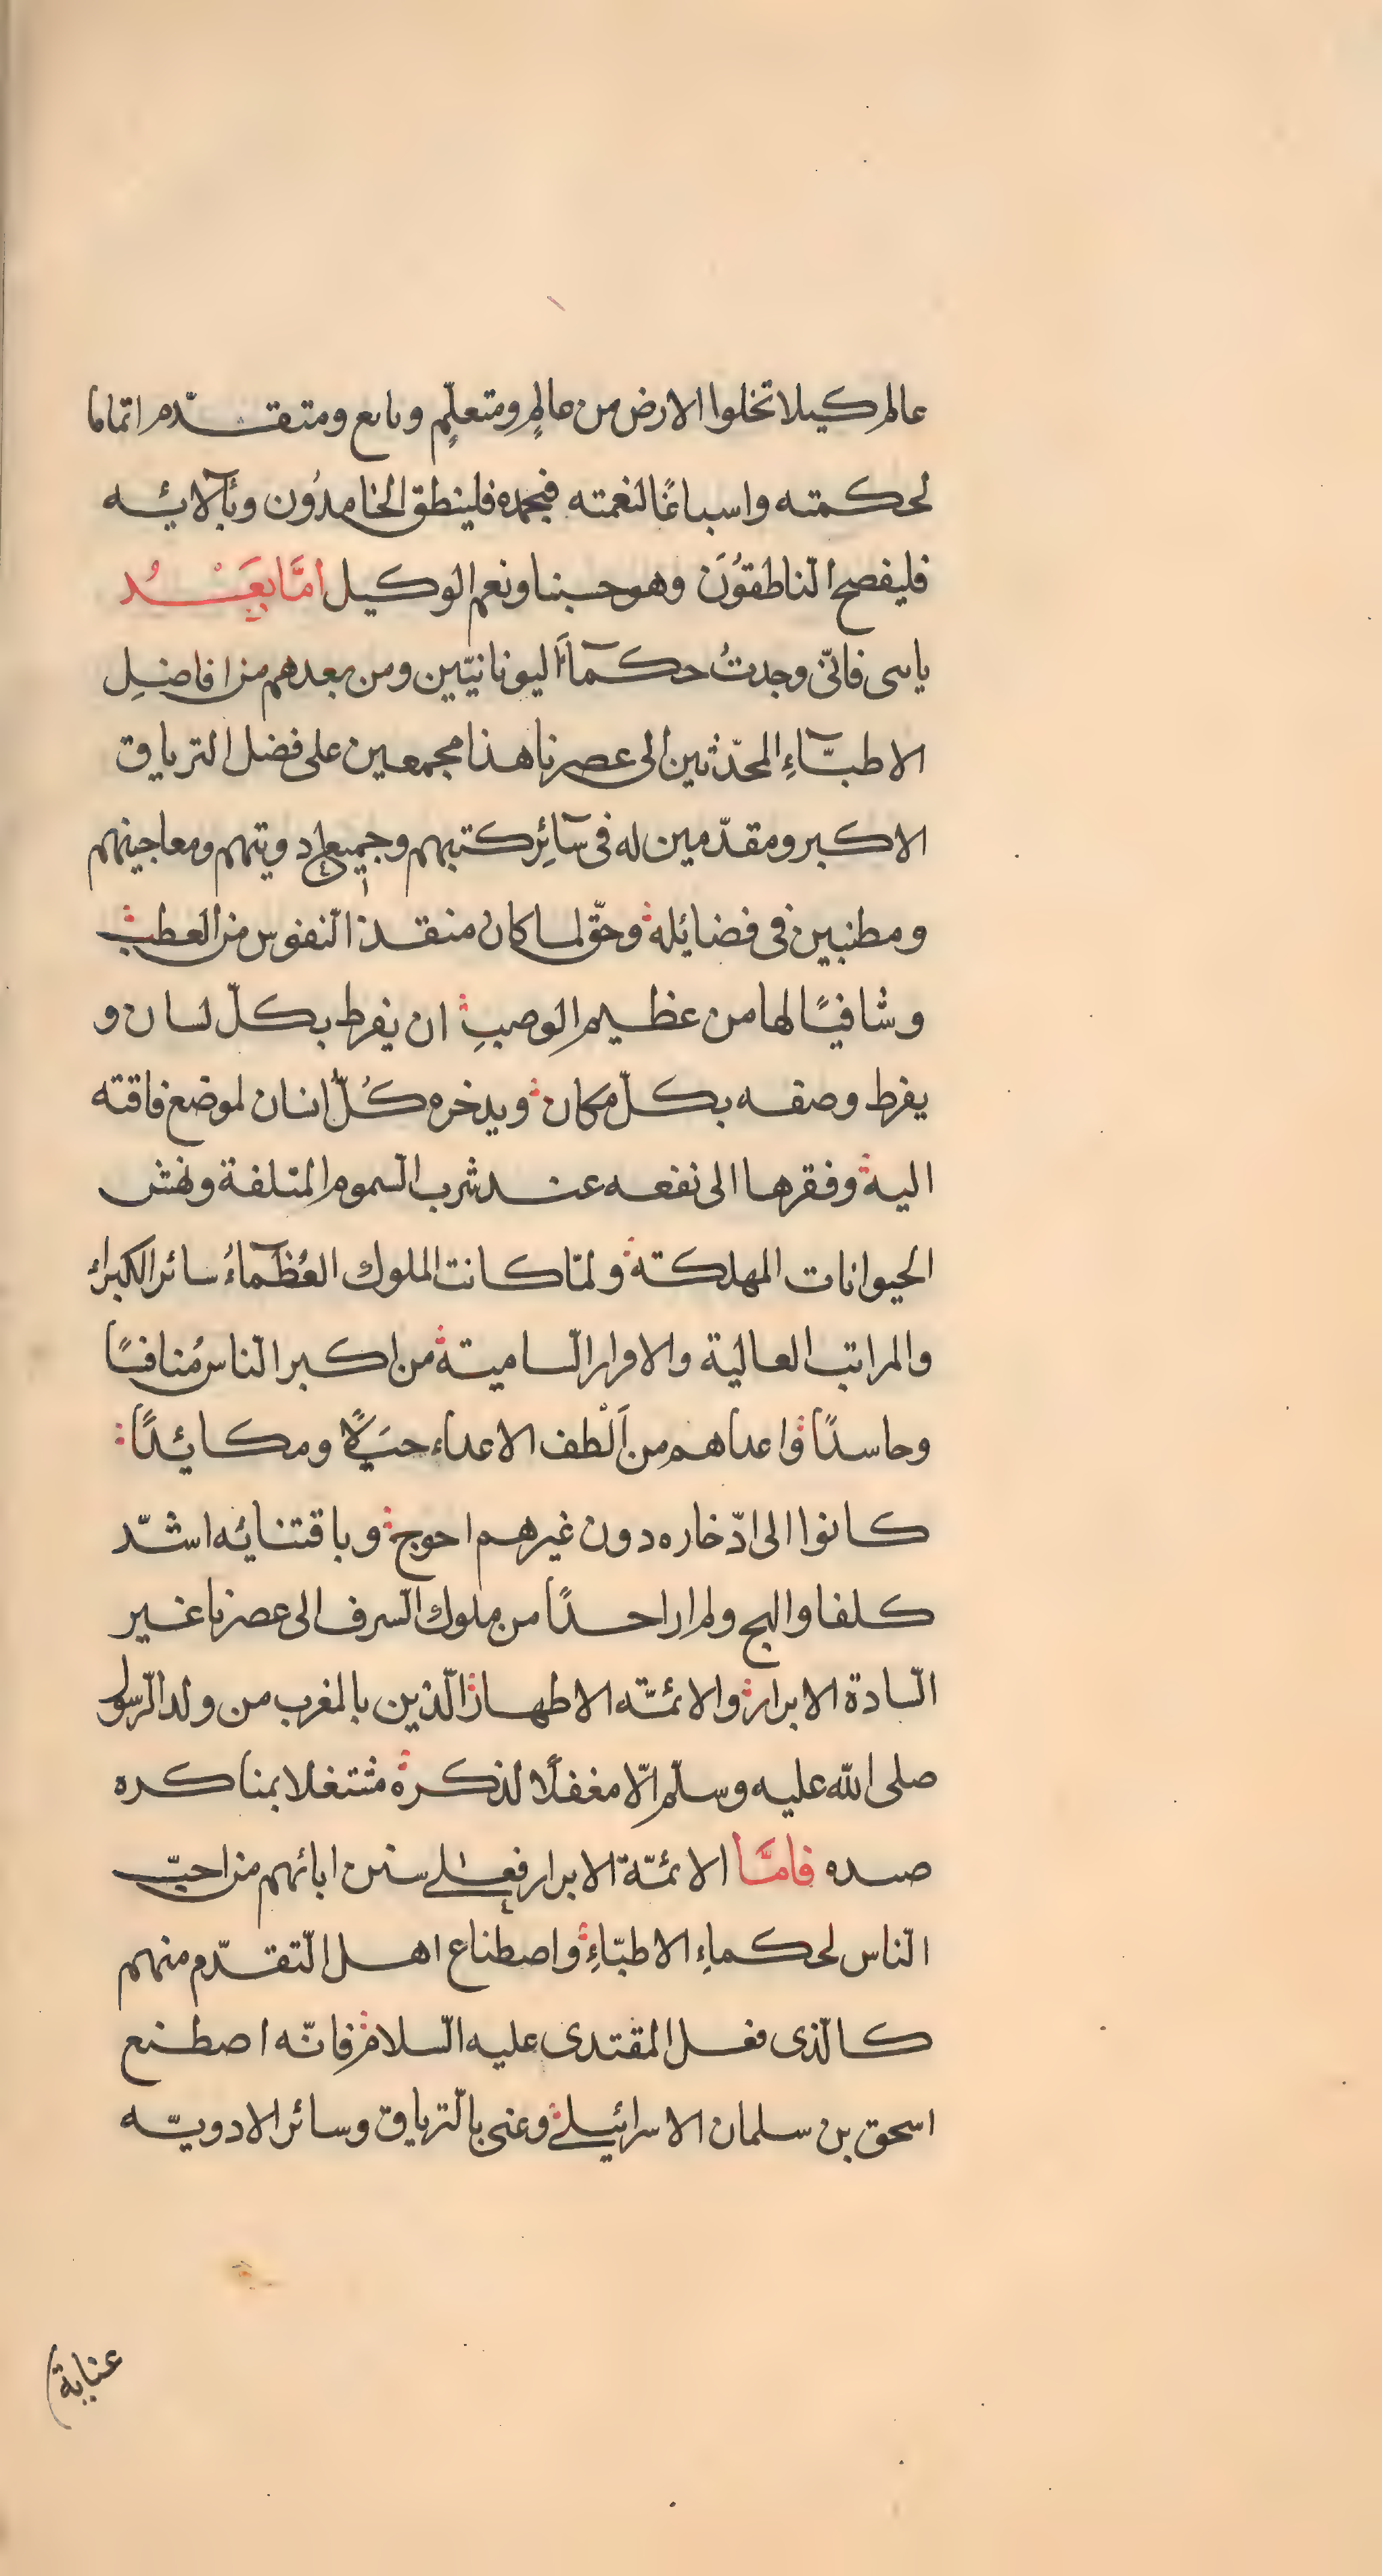 عالم كيلا تخلوا الارض من عالمٍ ومتعلّمٍ وتابع ومتقدّم اتماما
لحكمته واسباغًا لنعمته فبحمده فلينطق الخامدُون وبآلائه
فليفصح الناطقوُنَ وهو حسبنا ونعم الوكيل امَّا بَعَـْـدُ
يا فانّى وجدتُ حكمآءَ اليونانيّين ومن بعدهم من افاضلِ
الاطبّآءِ المحدّثين الى عصرنا هذا مجمعين على فضل الترياق
الاكبر ومقدّمين له فى سآئِر كتبهم وجميع ادويتهم ومعاجينهم
ومطنبين فى فضايله وحقّ لما كان منقذ النفوس من العطب
وشافيًا لها من عظيم الوصبِ ان يفرط بكلّ لسان و
يفرط وصفه بكلّ مكان ويدخره كُلّ انسان لموضع فاقته
اليه وفقرها الى نفعه عند شرب السّموم المتلفة ونهش
الحيوانات المهلكة ولمّا كانت الملوك العُظمآءُ سائر الكبراء
والمراتب العالية والاوار السّامية من اكبر النّاس مُنافسًا
وحاسدًا واعداهم من اَلْطف الاعداء حيَلًا ومكائدًا
كانوا الى ادّخاره دون غيرهم احوج وباقتنائه اشدّ
كلفا والهج ولم ار احدًا من ملوك السرف الى عصرنا غير
السّادة الابرار والائمّه الاطهار الّذين بالمغرب من ولد الرّسول
صلى الله عليه وسلّم الّا مغفلًا لذكره مشتغلا بمناكره
صده فامَّا الائمّة الابرار فعلى سنن ابائهم من احبّ
النّاس لحكماءِ الاطبّاءِ واصطناع اهل التّقدّم منهم
كالّذى فعل المقتدى عليه السّلام فانّه اصطنع
اسحق بن سلمان الاسرائيلى وعنى بالتّرياق وسائر الادويّه
عناية